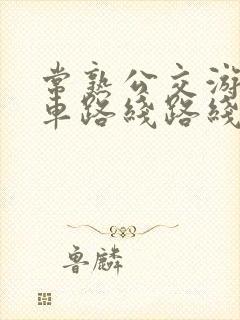 常熟公交游
车路线路线
鲁麟